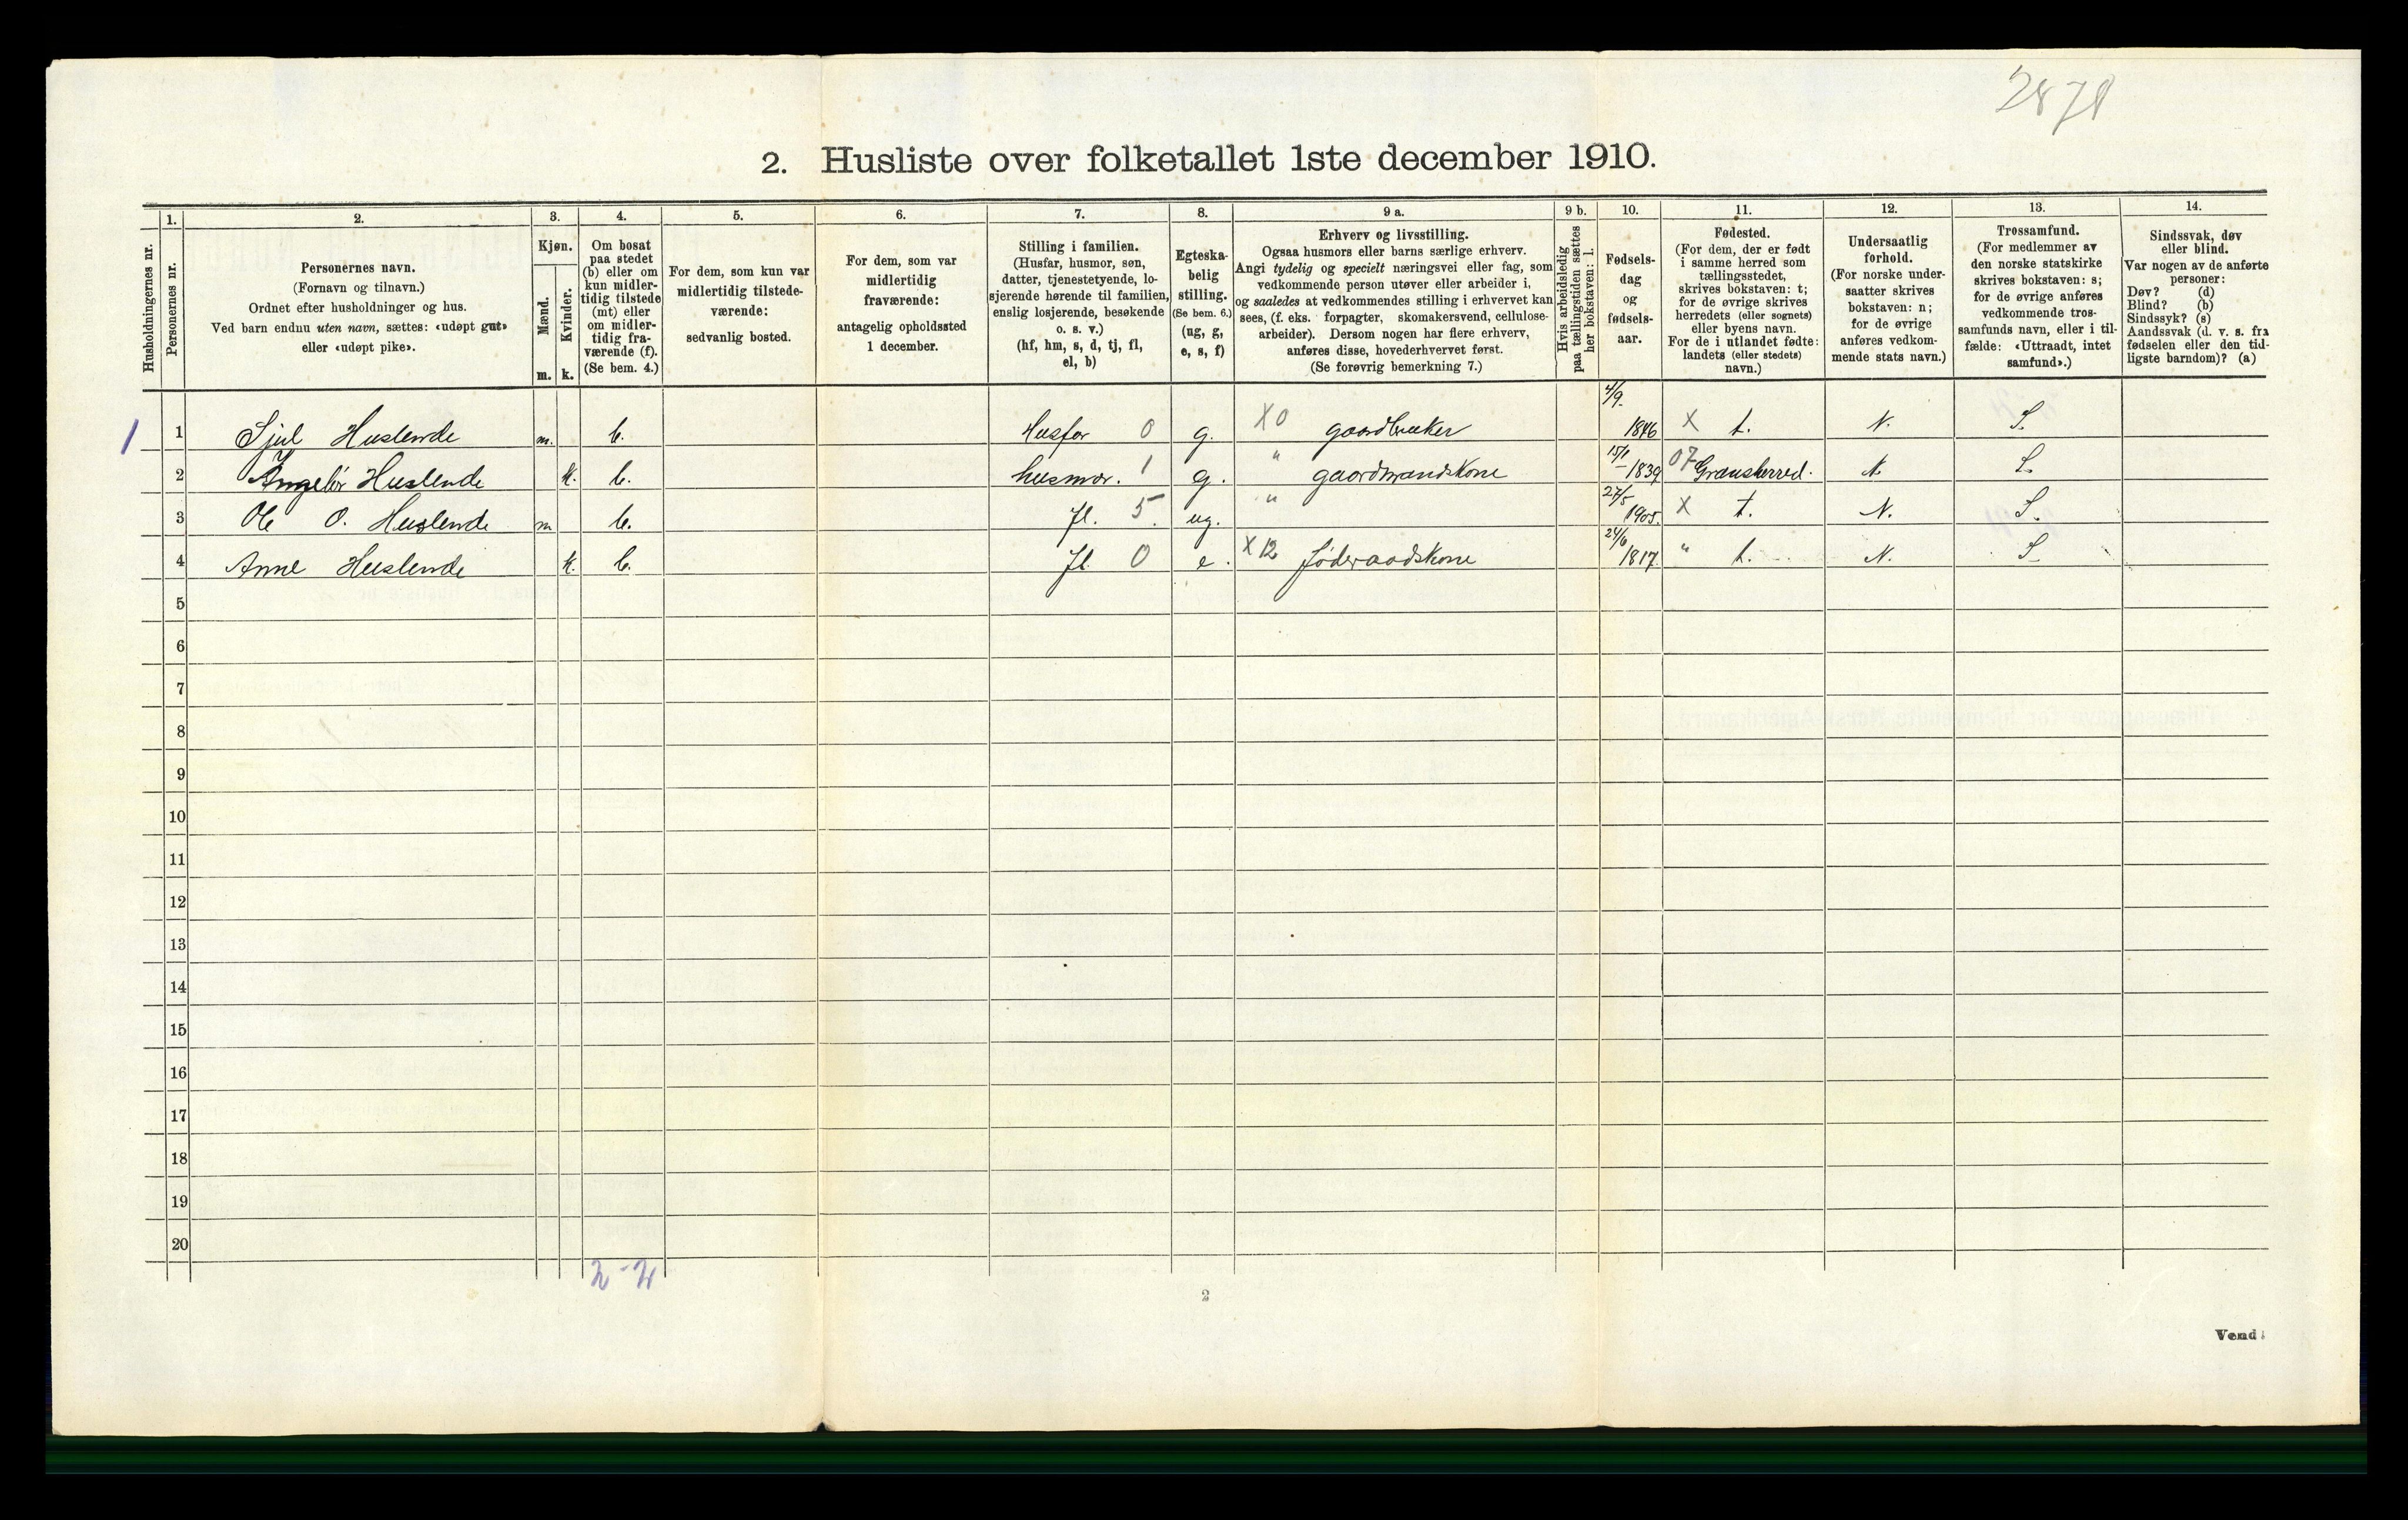 2871
2. Husliste over folketallet 1ste december 1910.
Husholdningernes nr.
1. Personernes nr.
2. Personernes navn.
(Fornavn og tilnavn.)
Ordnet efter husholdninger og hus.
Ved barn endnu uten navn, sættes: «udøpt gut»
eller «udøpt pike».
3. Kjøn.
Mænd. Kvinder.
m. k.
4. Om bosat
paa stedet
(b) eller om
kun midler-
tidig tilstede
(mt) eller
om midler-
tidig fra-
værende (f).
(Se bem. 4.)
5. For dem, som kun var
midlertidig tilstede-
værende:
sedvanlig bosted.
6. For dem, som var
midlertidig
fraværende:
antagelig opholdssted
1 december.
7. Stilling i familien.
(Husfar, husmor, søn,
datter, tjenestetyende, lo-
sjerende hørende til familien,
enslig losjerende, besøkende
o. s. v.)
(hf, hm, s, d, tj, fl,
el, b)
8. Egteska-
belig
stilling.
(Se bem. 6.)
(ug, g,
e, s, f)
9 a. Erhverv og livsstilling.
Ogsaa husmors eller barns særlige erhverv.
Angi tydelig og specielt næringsvei eller fag, som
vedkommende person utøver eller arbeider i,
og saaledes at vedkommendes stilling i erhvervet kan
sees, (f. eks. forpagter, skomakersvend, cellulose-
arbeider). Dersom nogen har flere erhverv,
anføres disse, hovederhvervet først.
(Se forøvrig bemerkning 7.)
9 b. Hvis arbeidsledig
paa tællingstiden sættes
her bokstaven: l.
10. Fødsels-
dag
og
fødsels-
aar.
11. Fødested.
(For dem, der er født
i samme herred som
tællingsstedet,
skrives bokstaven: t;
for de øvrige skrives
herredets (eller sognets)
eller byens navn.
For de i utlandet fødte:
landets (eller stedets)
navn.)
12. Undersaatlig
forhold.
(For norske under-
saatter skrives
bokstaven: n;
for de øvrige
anføres vedkom-
mende stats navn.)
13. Trossamfund.
(For medlemmer av
den norske statskirke
skrives bokstaven: s;
for de øvrige anføres
vedkommende tros-
samfunds navn, eller i til-
fælde: «Uttraadt, intet
samfund».)
14. Sindssvak, døv
eller blind.
Var nogen av de anførte
personer:
Døv? (d)
Blind? (b)
Sindssyk? (s)
Aandssvak (d. v. s. fra
fødselen eller den tid-
ligste barndom)? (a)
1 1 Sjul Huslende m. b. Husfar 0 g. X0 gaardbruker 4/9. 1846 X t. N. S.
2 Ingebør Huslende k. b. husmor. 1 g. " gaardmandskone 15/1 1839 07 Gransherred. N. S.
3 Ole O. Huslende m b. fl. 5. ug. " 27/5 1905. X t. N. S.
4 Anne Huslende k. b. fl 0 e. X12 føderaadskone 24/6 1817. " t. N. S.
5
6
7
8
9
10
11
12
13
14
15
16
17
18
19
20
2-2
2
Vend!